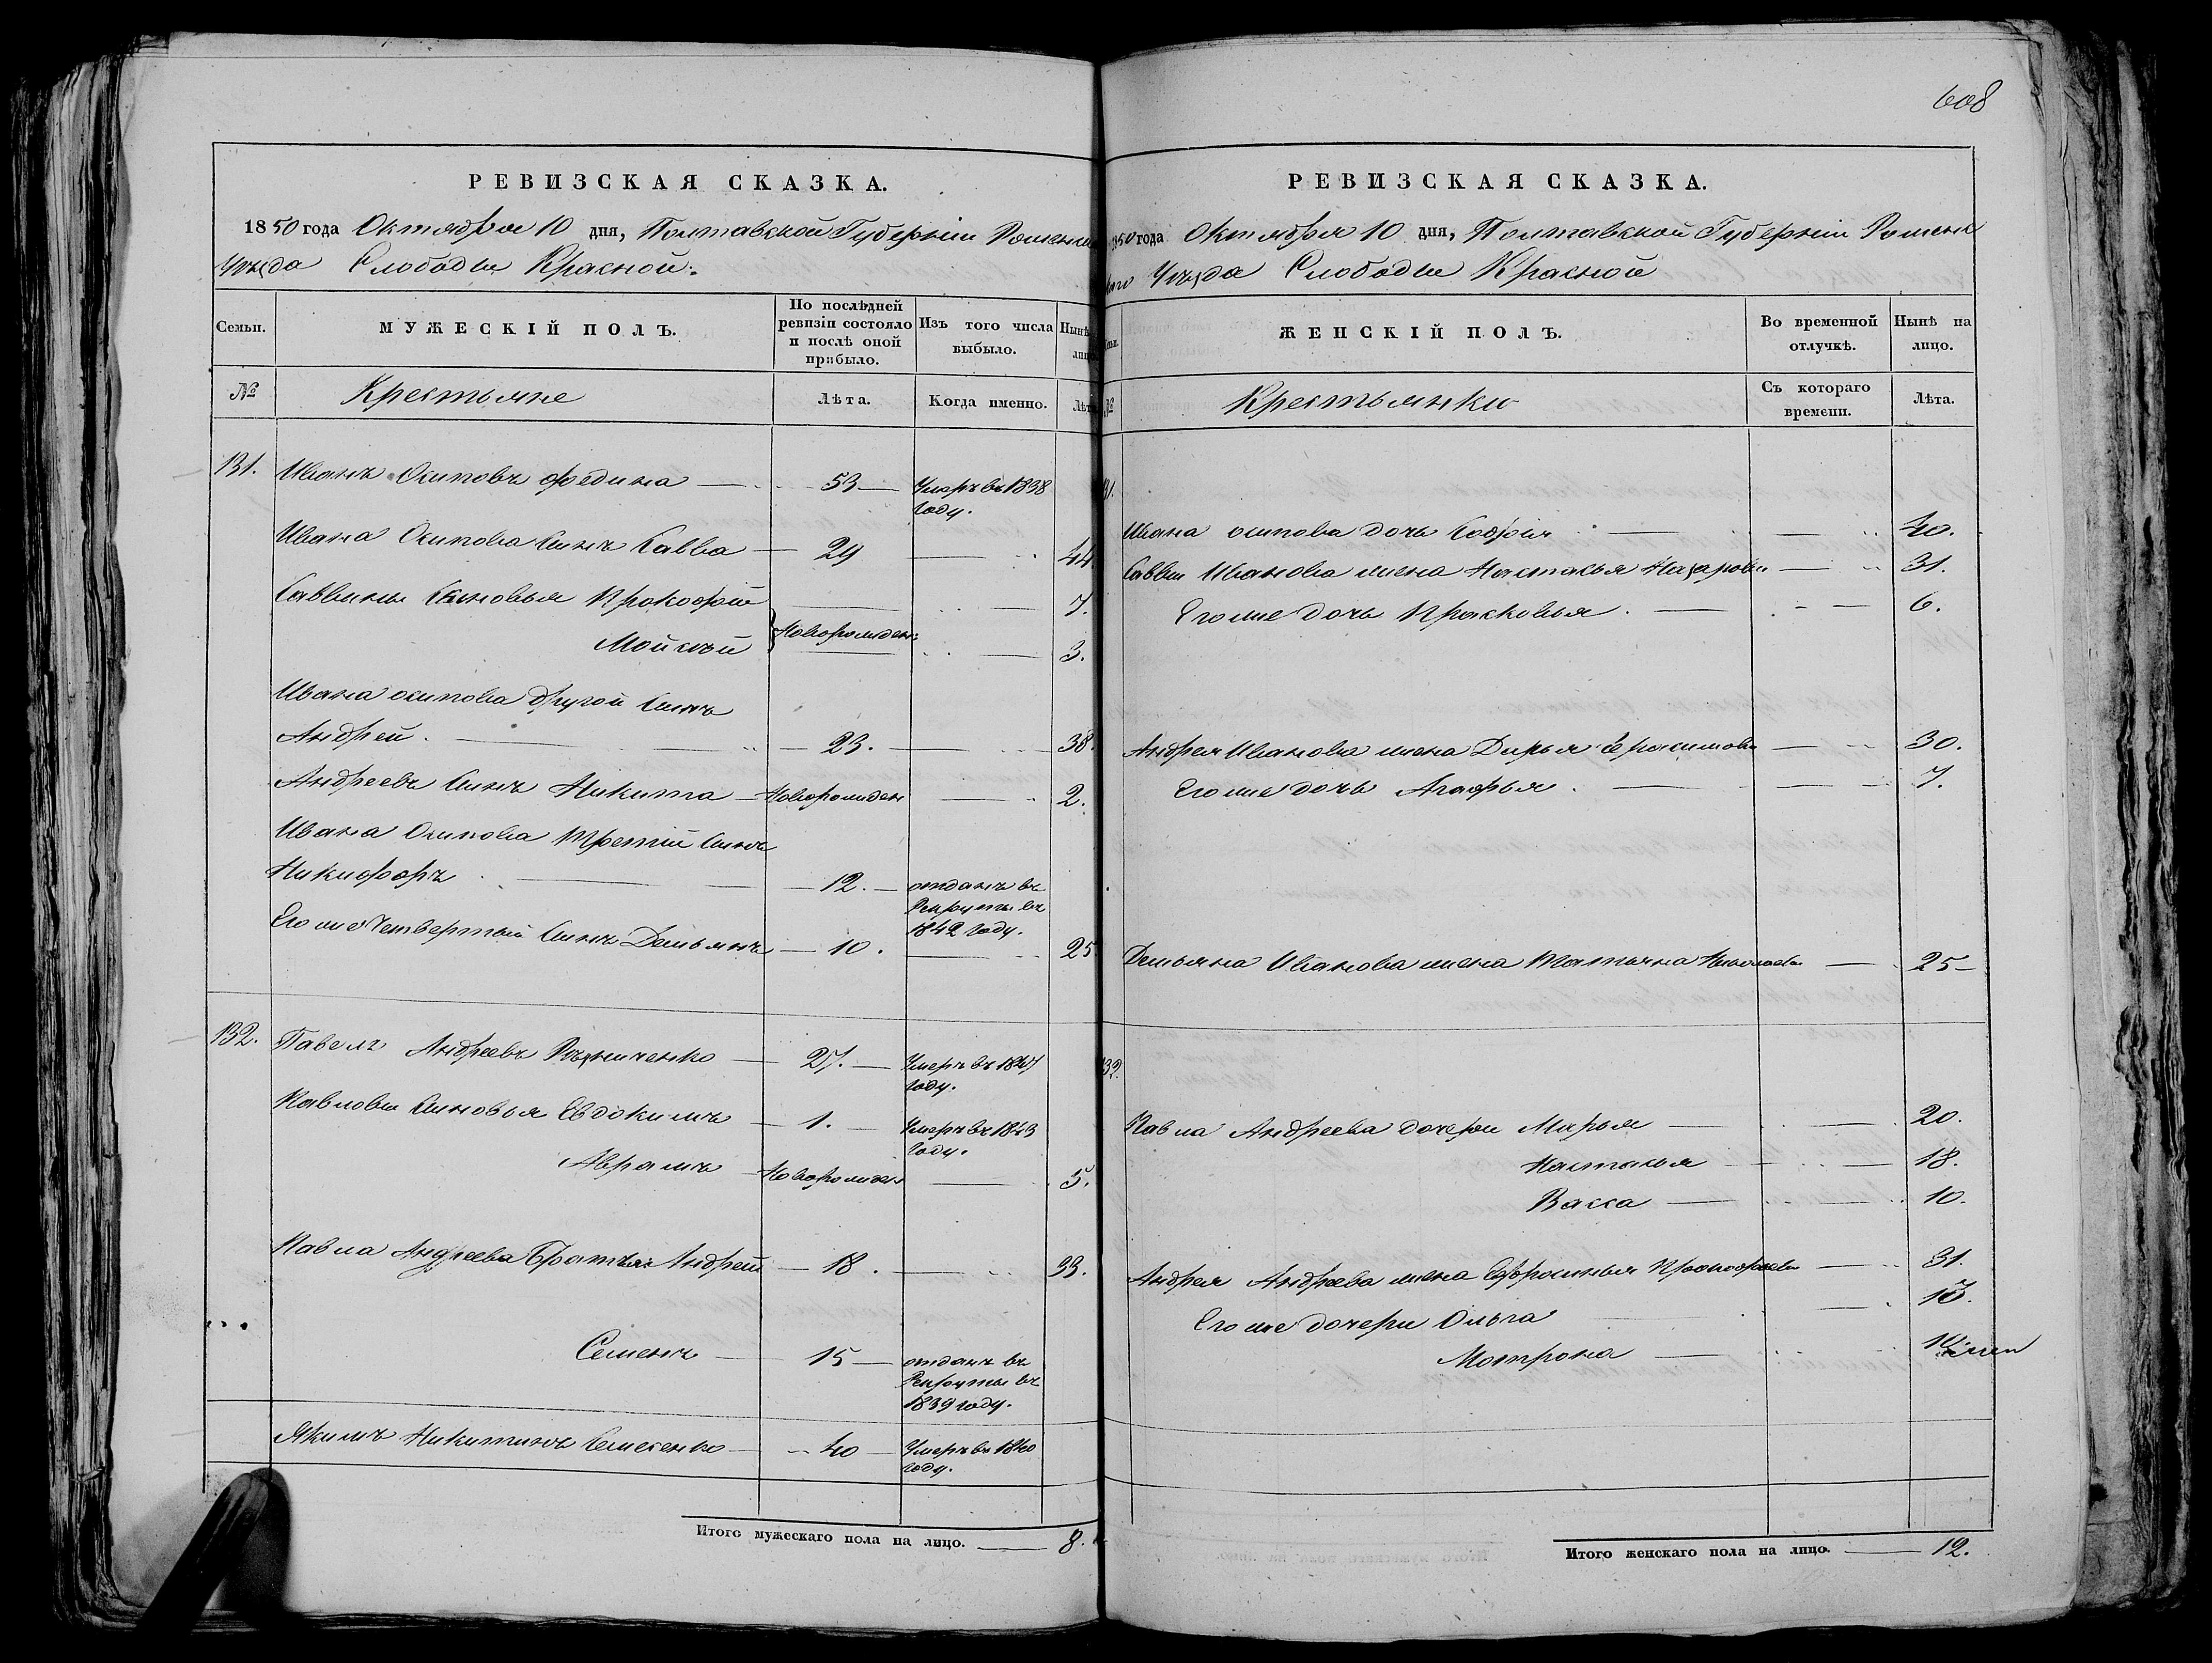 РЕВИЗСКАЯ СКАЗКА.
1850 года Октября 10 дня, Полтавской Губерніи Роменска
Уѣзда Слободы Красной.
Семьи.
МУЖЕСКІЙ ПОЛЪ.
По послѣдней ревизіи состояло и послѣ оной прибыло.
Изъ того числа выбыло.
Нынѣ лицо
№
Крестьяне
Лѣта.
Когда именно.
Лѣт
131. Иванъ Осиповъ Федина — 53 — Умеръ въ 1838
году.
Ивана Осипова Сынъ Савва — 29 — 44
Саввины Сыновья Прокофій — 7.
Новорожден:
Мойсѣй — 3.
Ивана осипова другой Сынъ
Андрей. — 23. — 38
Андреевъ Сынъ Никита — Новорожден — 2.
Ивана Осипова третій Сынъ
Никифоръ — 12. — отданъ въ
Рекруты въ
1842 году.
Его же Четвертый Сынъ Демьянъ — 10. — 25
132. Павелъ Андреевъ Рѣзниченко — 27. — Умеръ въ 1847
году.
Павловы Сыновья Евдокимъ — 1. — Умеръ въ 1843
году.
Аврамъ — Новорожден — 5.
Павла Андреева Братья: Андрей — 18. — 33.
Семенъ — 15 — отданъ въ
Рекруты въ
1839 году.
Якимъ Никитинъ Семененко — 40 — Умеръ въ 1840
году.
Итого мужескаго пола на лицо. — 8.
608
РЕВИЗСКАЯ СКАЗКА.
850 года Октября 10 дня, Полтавской Губерніи Роменс
каго Уѣзда Слободы Красной
ЖЕНСКІЙ ПОЛЪ.
Во временной отлучкѣ.
Нынѣ на лицо.
№
Крестьянки
Съ котораго времени.
Лѣта.
31.
Ивана осипова дочь Софія — 40.
Саввы Иванова жена Настасья Назарова — 31.
Его же дочь Прасковья. — 6.
Андрея Иванова жена Дарья Герасимова — 30.
Его же дочь Агафья. — 7.
Демьяна Иванова жена Татьяна Николаева — 25 —
32.
Павла Андреева дочери Марья — 20.
Настасья — 18.
Васса — 10.
Андрея Андреева жена Ефросинья Прокофьева — 31.
Его же дочери Ольга — 10.
Мотрона —
Итого женскаго пола на лицо. — 12.